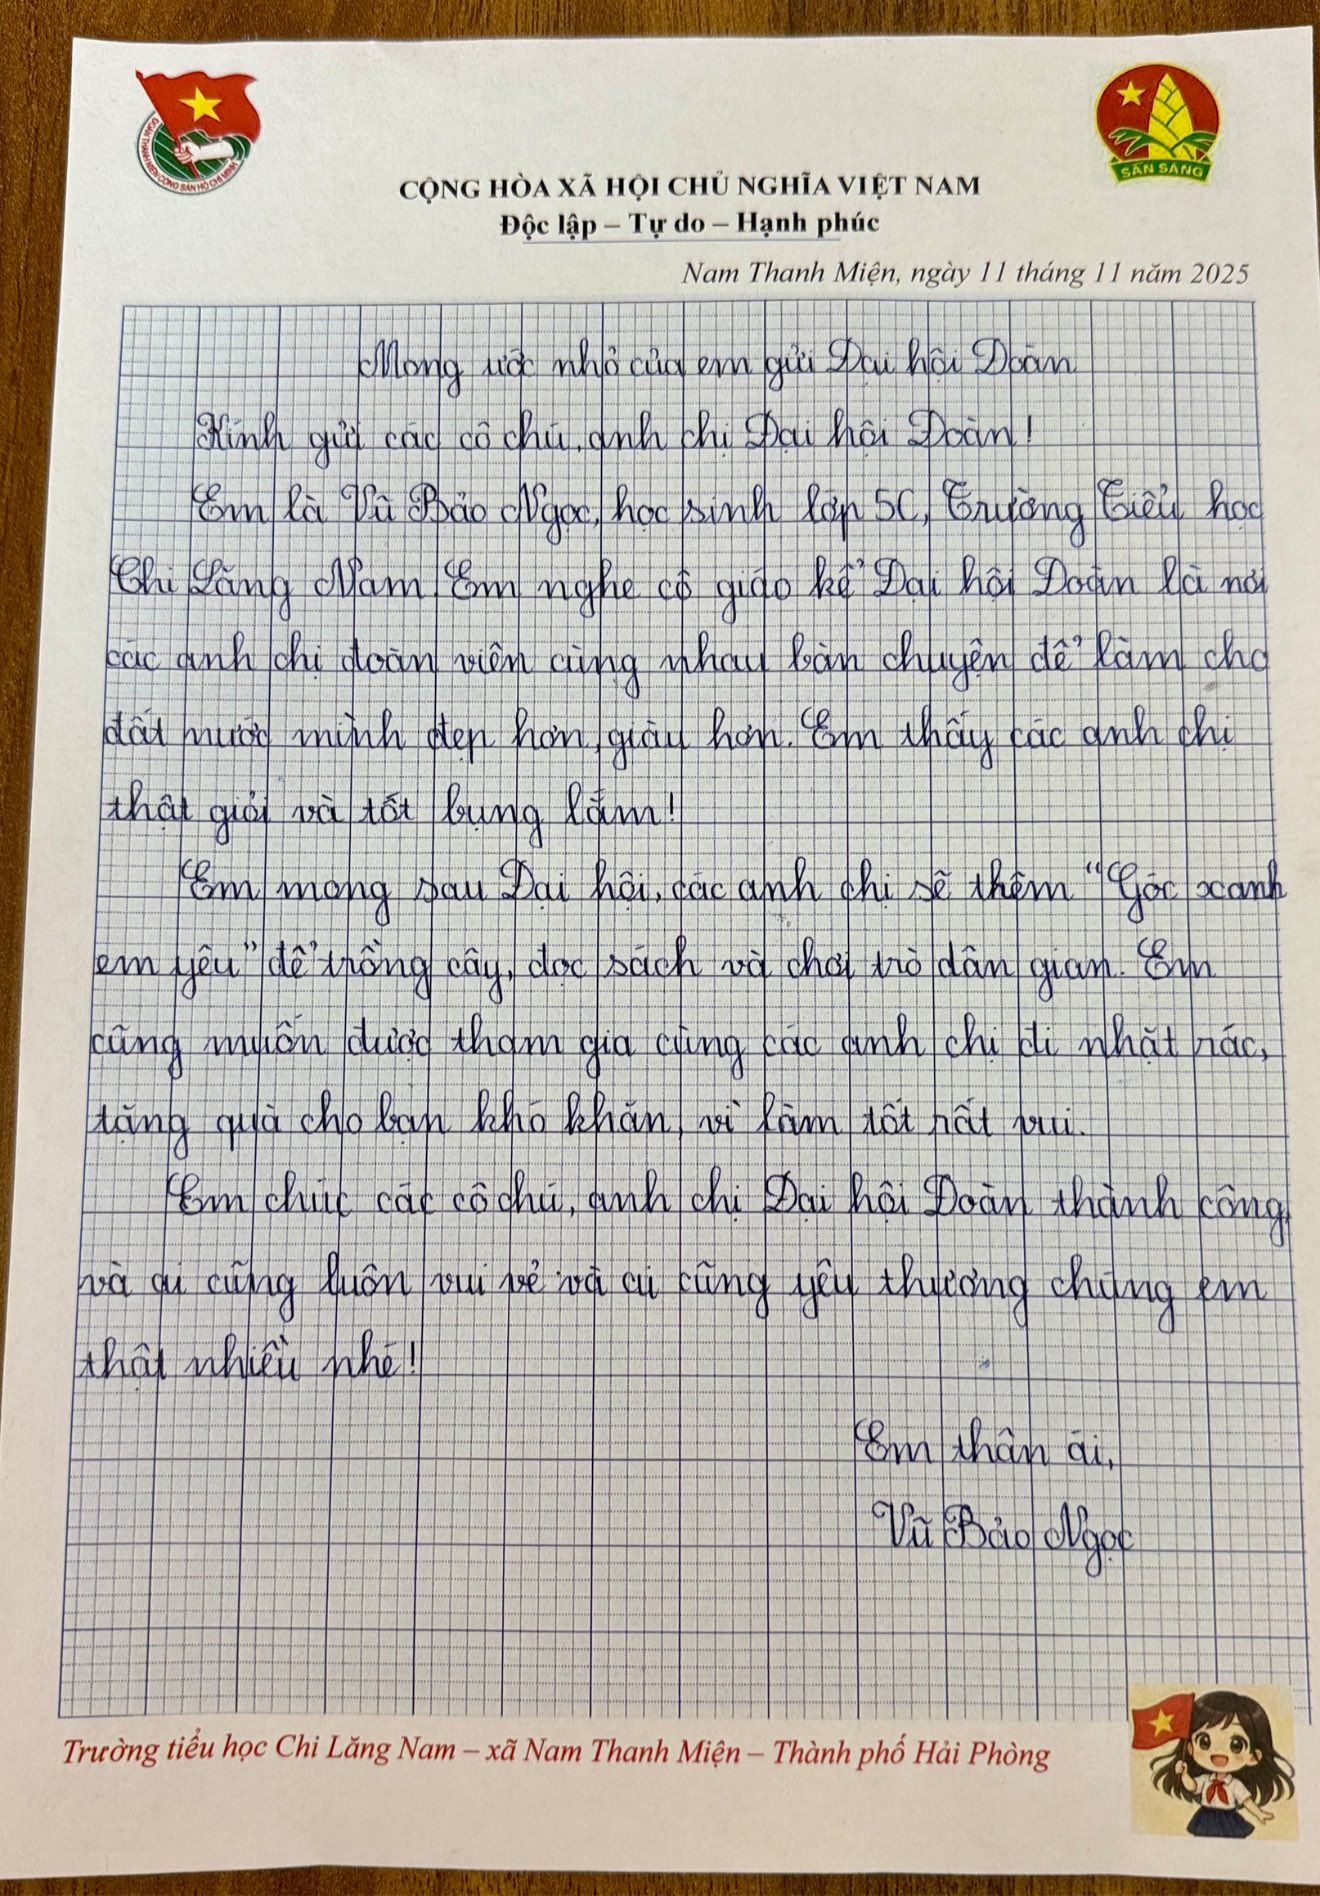 ĐOÀN THANH NIÊN CỘNG SẢN HỒ CHÍ MINH
SẴN SÀNG
CỘNG HÒA XÃ HỘI CHỦ NGHĨA VIỆT NAM
Độc lập – Tự do – Hạnh phúc
Nam Thanh Miện, ngày 11 tháng 11 năm 2025
Mong ước nhỏ của em gửi Đại hội Đoàn
Kính gửi các cô chú, anh chị Đại hội Đoàn!
Em là Vũ Bảo Ngọc, học sinh lớp 5C, Trường Tiểu học
Chi Lăng Nam. Em nghe cô giáo kể Đại hội Đoàn là nơi
các anh chị đoàn viên cùng nhau bàn chuyện để làm cho
đất nước mình đẹp hơn, giàu hơn. Em thấy các anh chị
thật giỏi và tốt bụng lắm!
Em mong sau Đại hội, các anh chị sẽ thêm "Góc xanh
em yêu" để trồng cây, đọc sách và chơi trò dân gian. Em
cũng muốn được tham gia cùng các anh chị đi nhặt rác,
tặng quà cho bạn khó khăn, vì làm tốt rất vui.
Em chúc các cô chú, anh chị Đại hội Đoàn thành công
và ai cũng luôn vui vẻ và ai cũng yêu thương chúng em
thật nhiều nhé!
Em thân ái,
Vũ Bảo Ngọc
Trường tiểu học Chi Lăng Nam – xã Nam Thanh Miện – Thành phố Hải Phòng